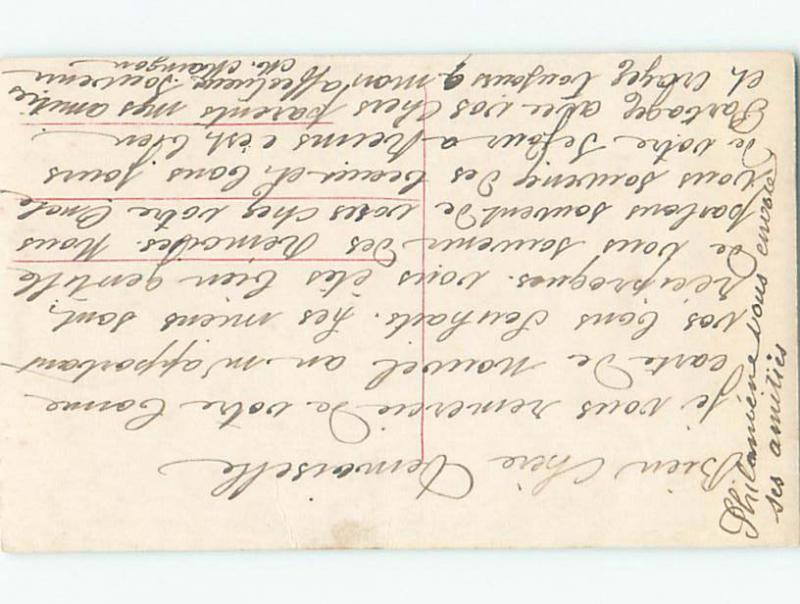 Bien Chère Demoiselle
Je vous remercie de votre bonne
carte de nouvel an m'apportant
vos bons souhaits. Les miens sont,
réciproques. vous êtes bien gentille
de vous souvenir des Rémoises. Nous
parlons souvent de vous chez votre Oncle
vous souvenez des beaux et bons jours
de votre séjour a Reims c'est bien.
Partagez avec vos chers parents mes amitiés
et croyez toujours a mon affectueux souvenir
Philomène vous envoie
ses amitiés